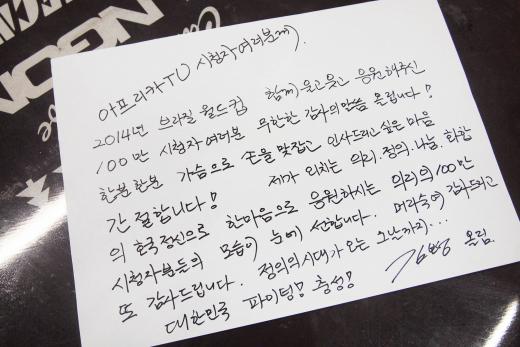 아프리카TV 시청자 여러분께).
2014년 브라질 월드컵 함께 울고웃고 응원해주신
100만 시청자여러분 무한한 감사의말씀 올립니다!
한분 한분 가슴으로 손을 맞잡고 인사드리고 싶은 마음
간절합니다! 제가 외치는 의리. 정의. 나눔. 화합
의 호국정신으로 한마음으로 응원하시는 의리의100만
시청자분들의 모습이 눈에 선합니다. 머리숙여 감사드리고
또 감사드립니다. 정의의시대가 오는 그날까지...
대한민국 파이팅! 충성! 올림.